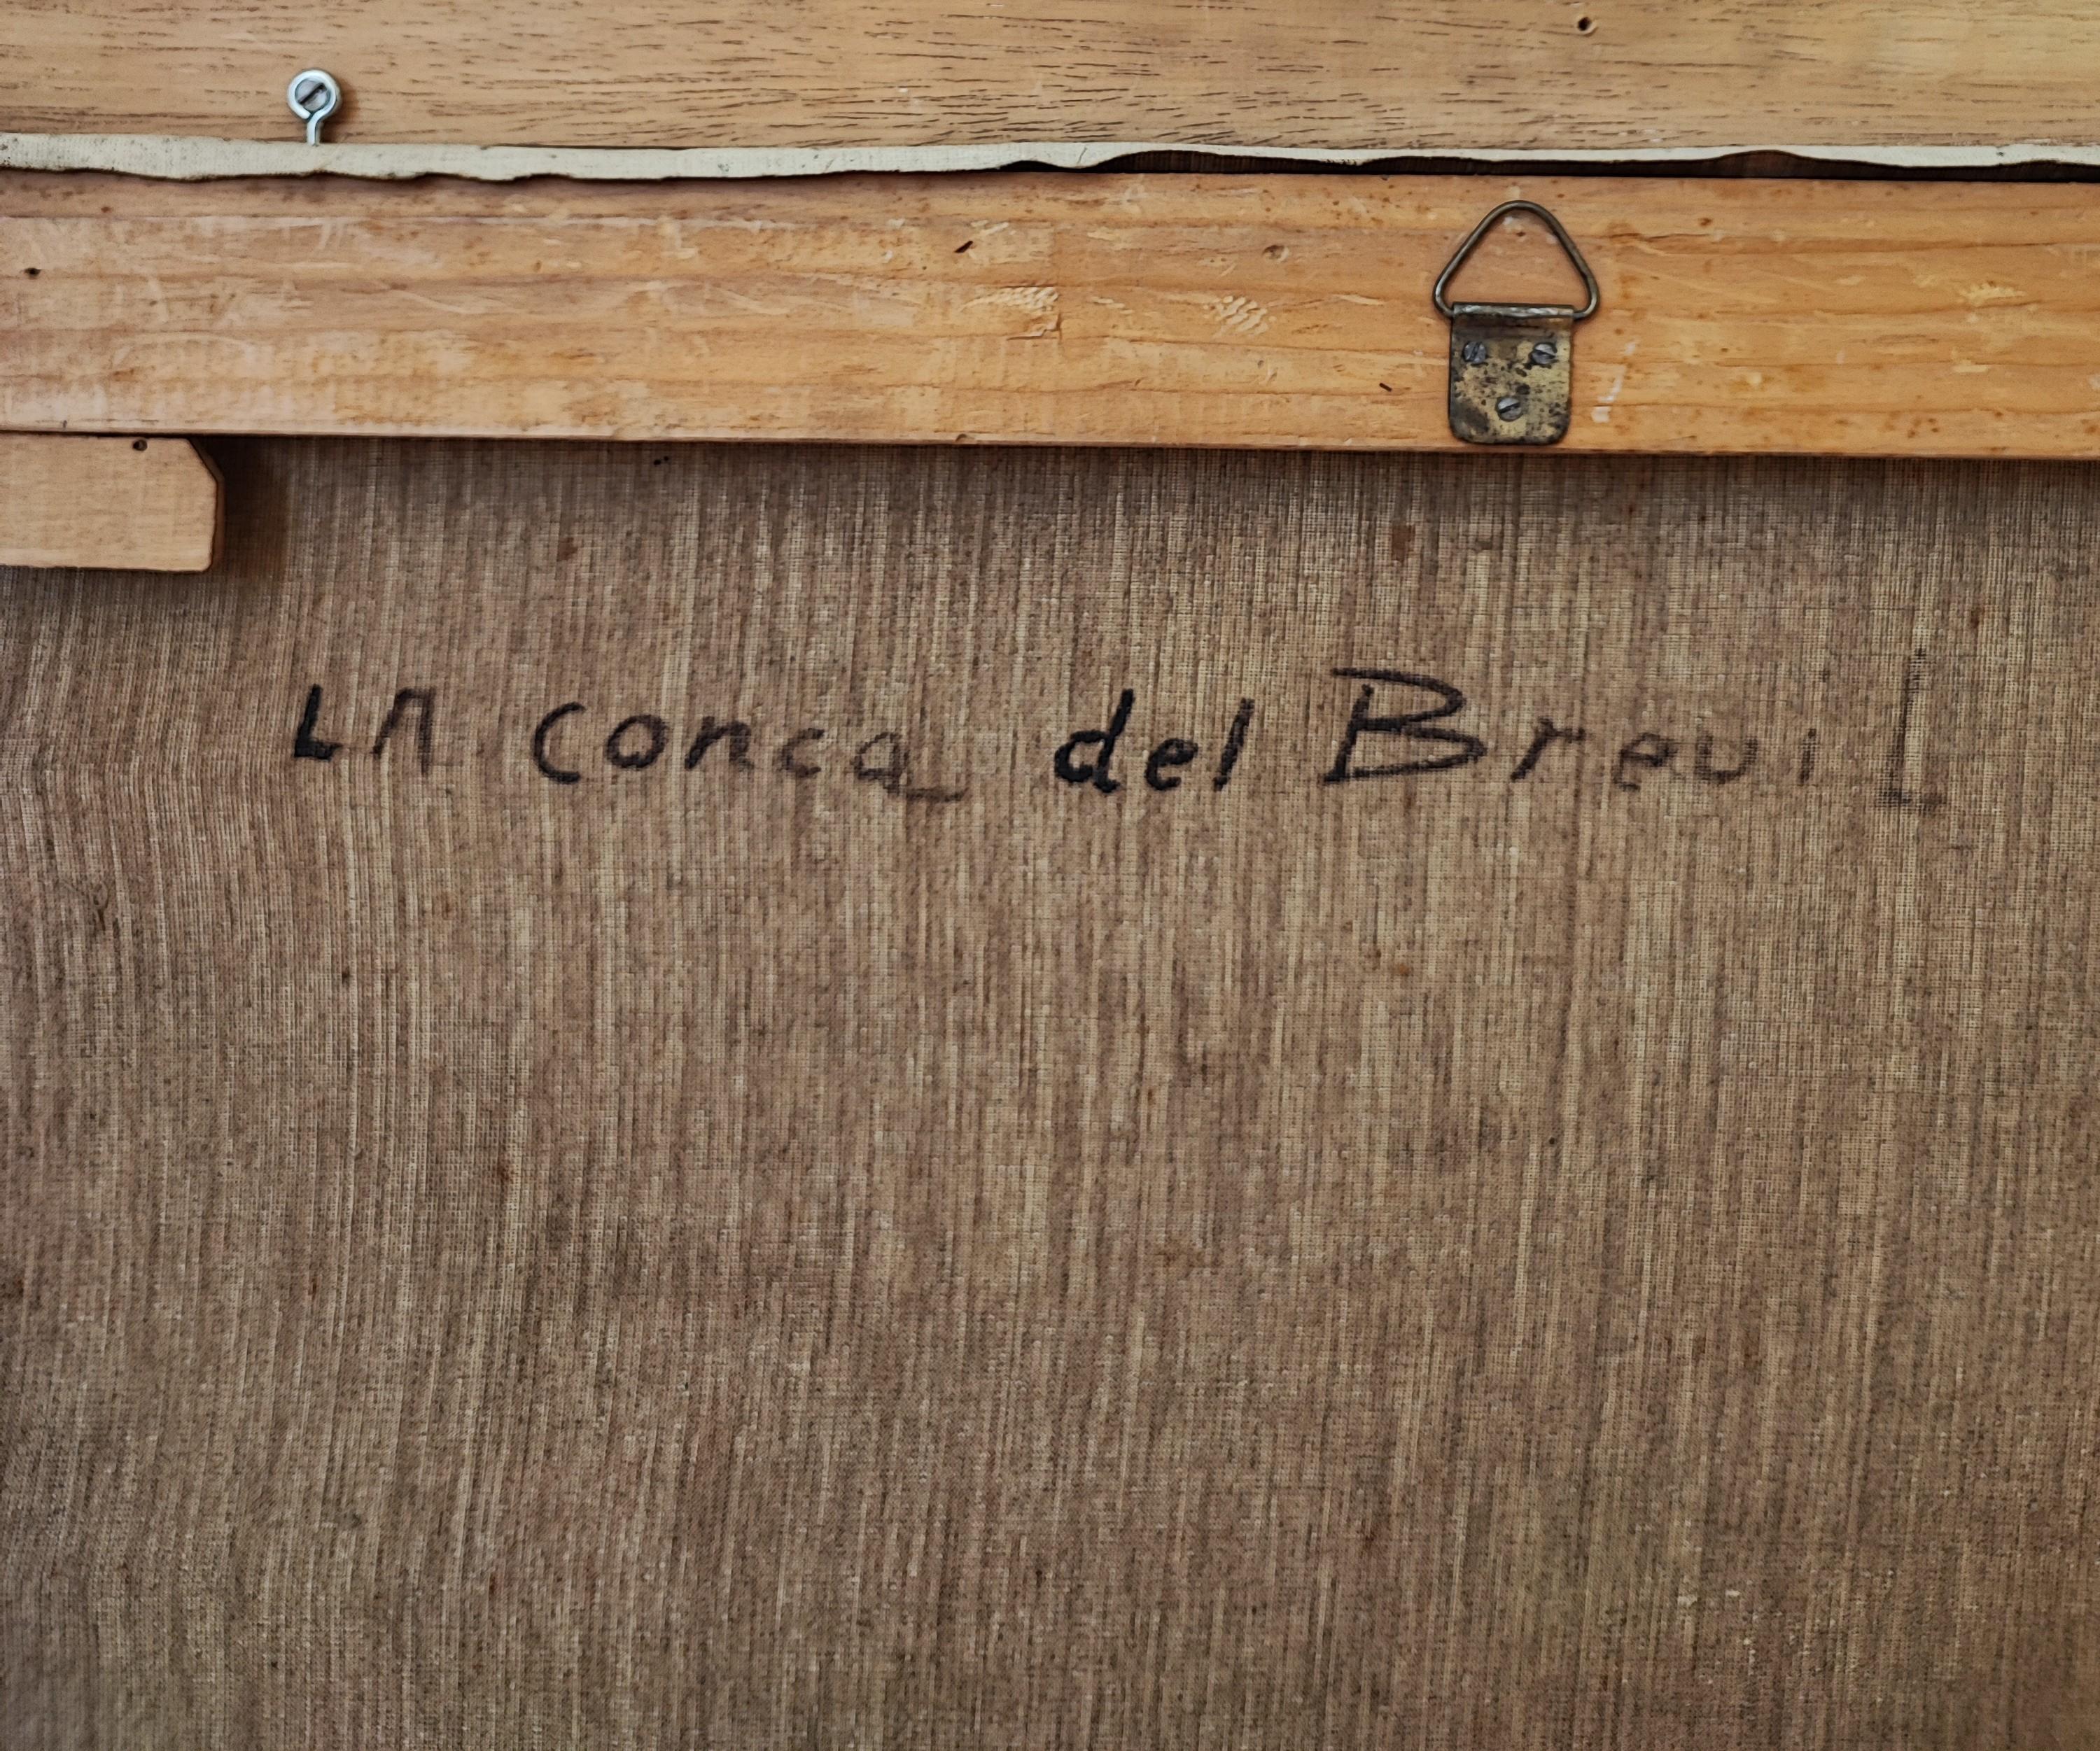 LA conca del Breuil